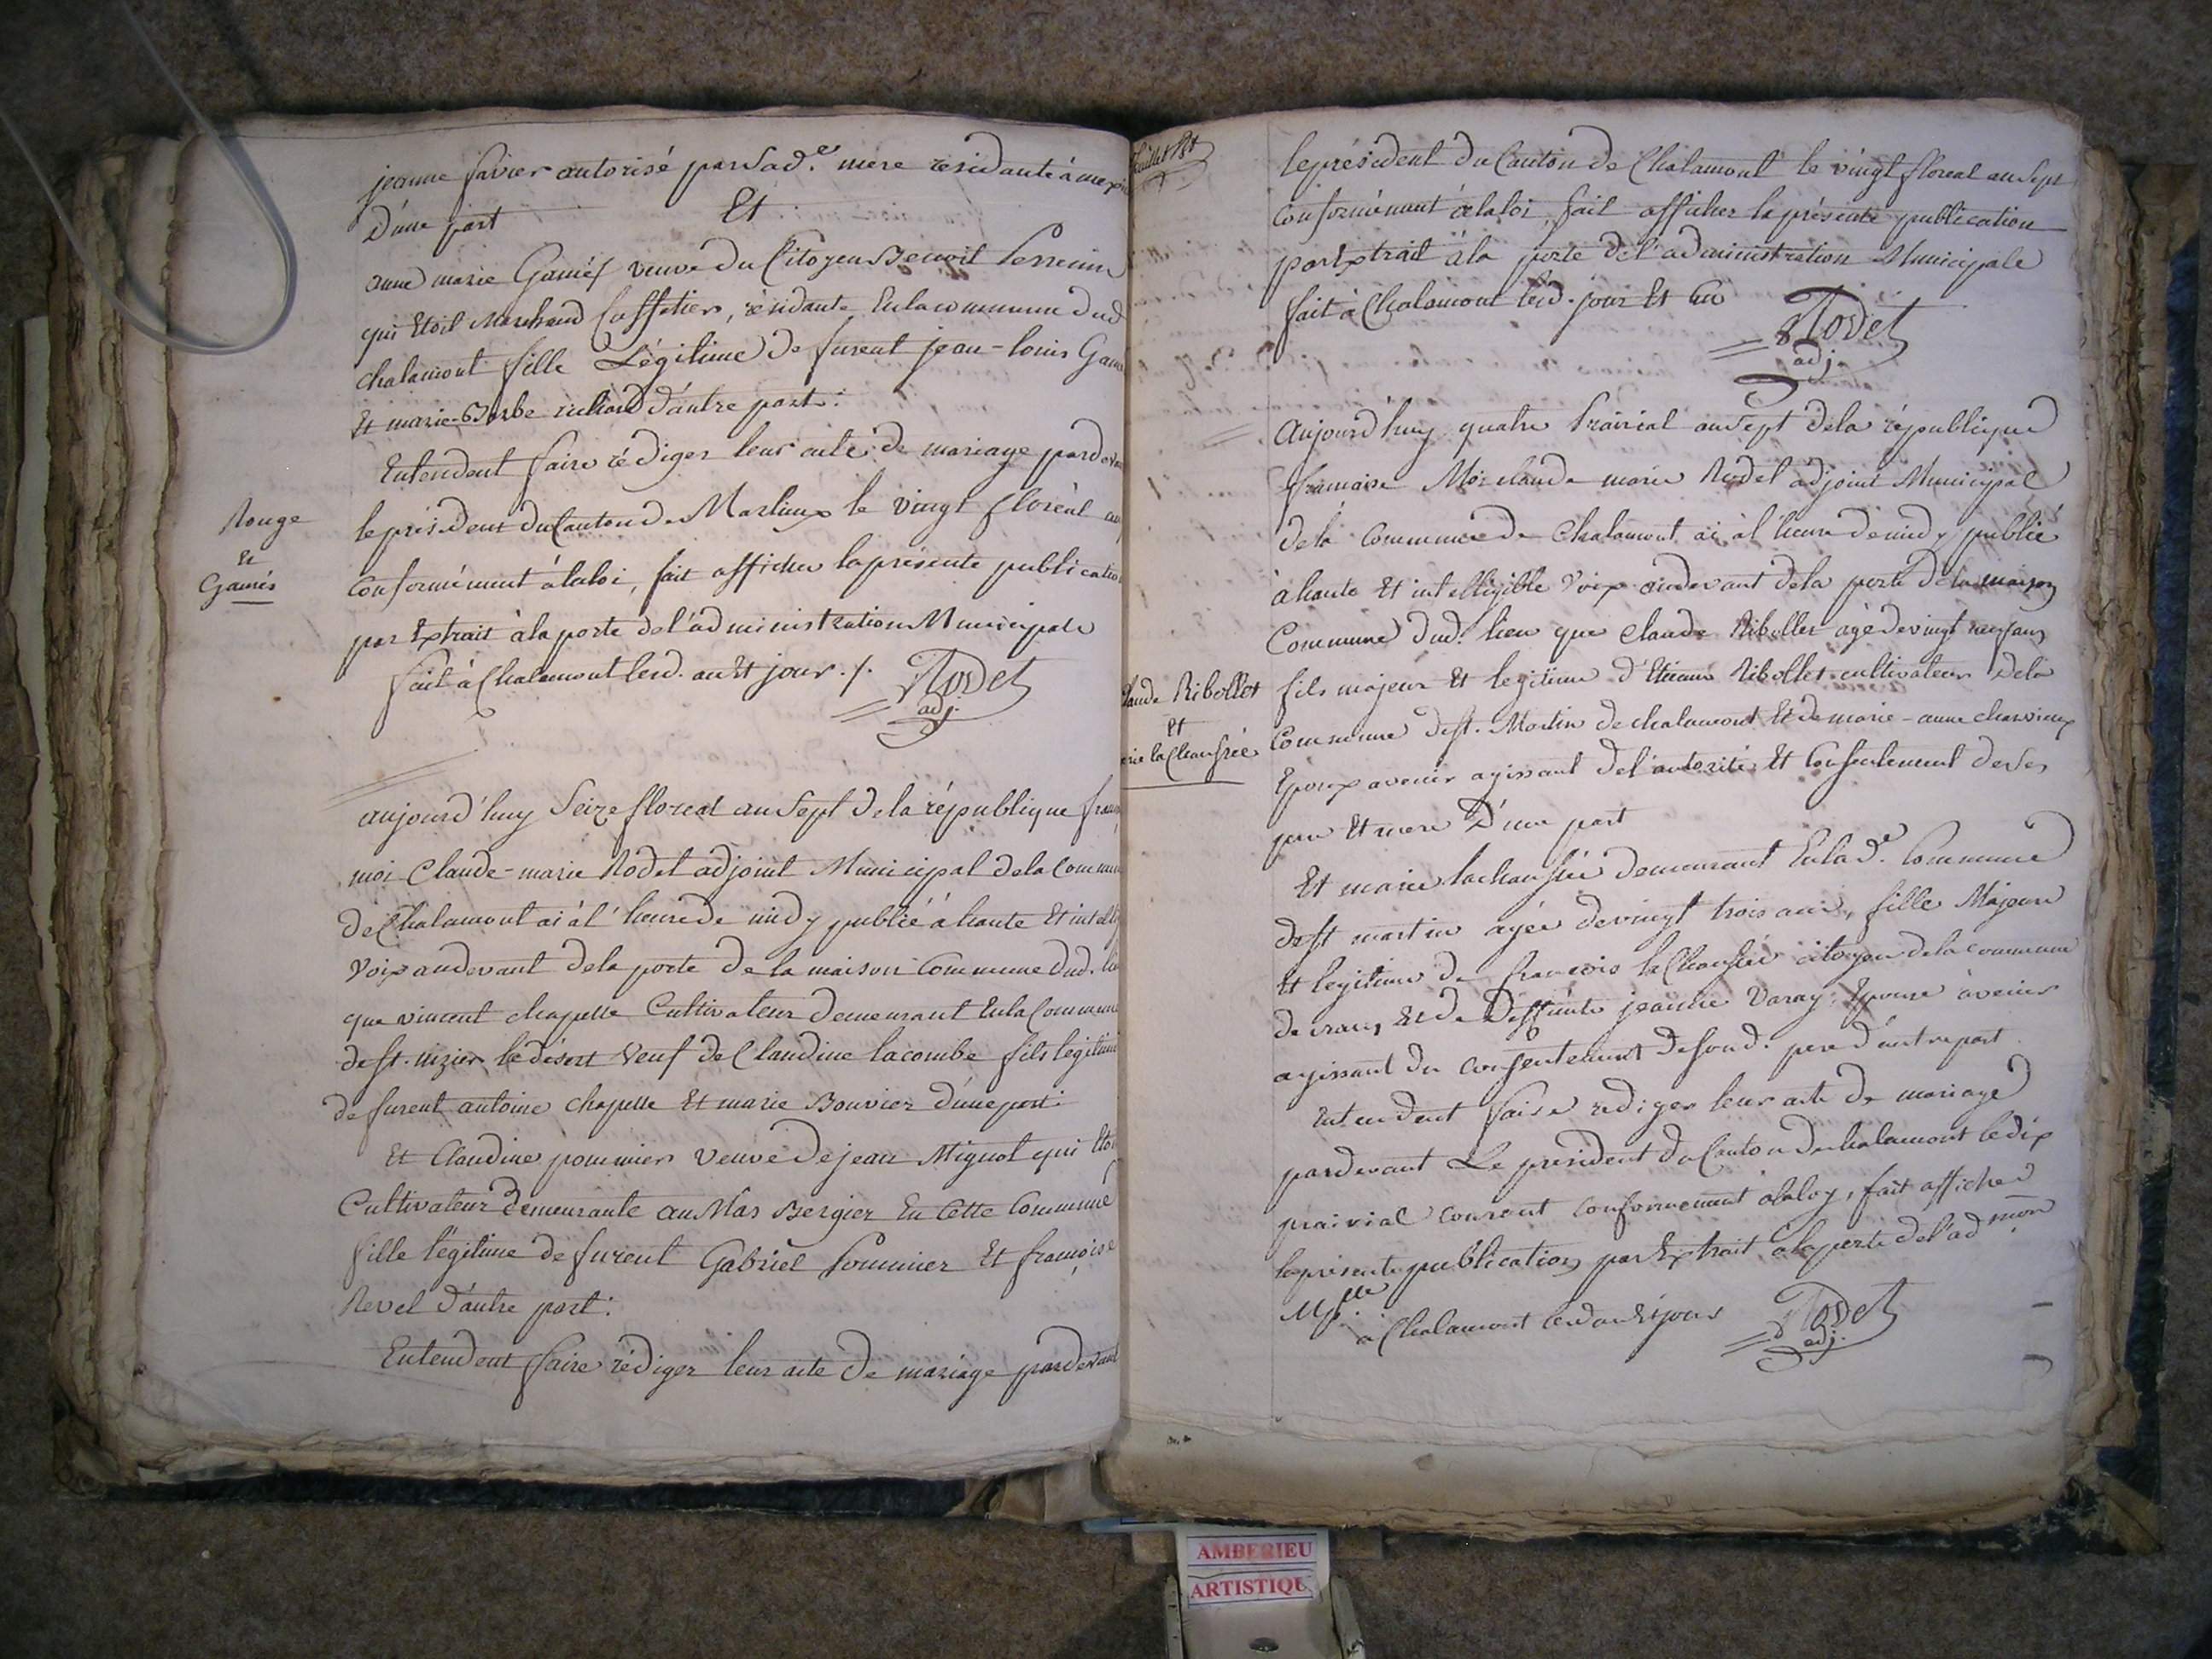 jeanne favier autorisé par sad.e mere residante à
D'une part Et
anne marie Gamés veuve du Citoyen Benoit Perrenin
qui Etoit Marchand Caffetier, résidante En la commune dud
chalamont fille Légitime de furent jean-louis
Et marie-Barbe richard d'autre part.
Entendent faire rédiger leur acte de mariage pardevan
le président du Canton de Marlieux le vingt floréal
Rouge
Et
Gamés
conformément à la loi, fait afficher la présente publication
par Extrait à la porte de l'administration Municipale
fait à Chalamont lesd. an Et jour ./.
Rodet
adj.
aujourd'huy Seize floreal an Sept de la république
moi Claude-marie Rodet adjoint Municipal de la Commun
de Chalamont ai à l'heure de midy publié à haute Et intelli
Voix audevant de la porte de la maison Commune dud. lieu
que vincent chapelle Cultivateur demeurant En la Commune
de St. nizier le désert Veuf de Claudine lacombe fils legitime
de furent antoine chapelle Et marie Bouvier d'une part.
Et Claudine pommier Veuve de jean Mignot qui Etoit
Cultivateur demeurante au Mas Bergier En Cette Commune
fille légitime de furent Gabriel Pommier Et françoise
Revel d'autre part.
Entendent faire rédiger leur acte de mariage pardevant
le président du Canton de Chalamont le vingt floreal an Sept
conformément à la loi, fait afficher la présente publication
par Extrait à la porte de l'administration Municipale
fait à Chalamont lesd. jour Et an
Rodet
adj.
Aujourd'huy quatre Prairial an Sept de la république
française Moi claude marie Rodet adjoint Municipal
de la Commune de Chalamont ai à l'heure de midy publié
à haute Et intelligible Voix audevant de la porte de la maison
Commune dud. lieu que Claude Ribollet agé de vingt neuf ans
laude Ribollet
Et
rie la Chaussée
fils majeur Et legitime d'Etienne Ribollet cultivateur de la
Commune de St. Martin de chalamont Et de marie-anne charvieux
Epoux avenir agissant de l'autorité Et Consentement de Ses
pere Et mere D'une part
Et marie lachaussée demeurant En lad.e Commune
de St martin agée de vingt trois ans, fille Majeure
Et legitime de francois la Chaussée citoyen de la commune
de crans Et de Deffunte jeanne Varay: Epouse à venir
agissant du consentement de sond. pere d'autre part
Entendent faire rediger leur acte de mariage
pardevant Le president du Canton de chalamont le dix
prairial courent conformement a la loy, fait afficher
la présente publication par Extrait a la porte de l'ad mon
Mp.lle
à Chalamont lesd an Et jour
Rodet
adj.
AMBERIEU
ARTISTIQU